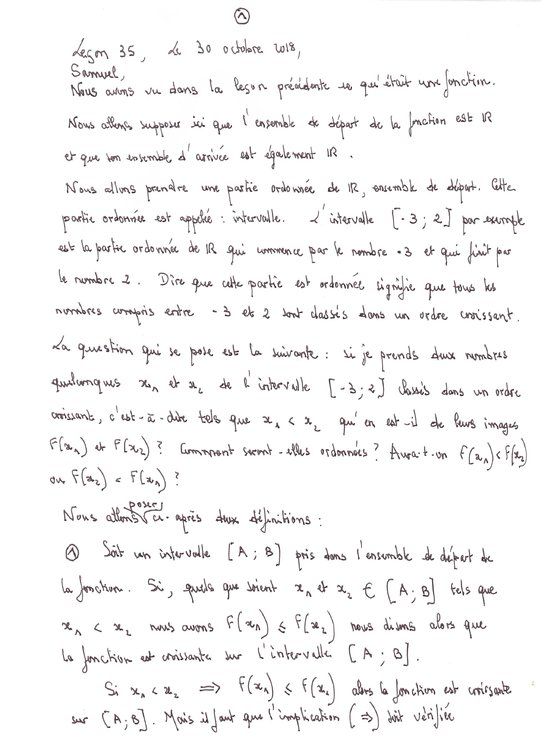 ①
Leçon 35, Le 30 octobre 2018,
Samuel,
Nous avons vu dans la leçon précédente ce qu'était une fonction.
Nous allons supposer ici que l'ensemble de départ de la fonction est IR
et que son ensemble d'arrivée est également IR.
Nous allons prendre une partie ordonnée de IR, ensemble de départ. Cette
partie ordonnée est appelée : intervalle. L'intervalle [-3 ; 2] par exemple
est la partie ordonnée de IR qui commence par le nombre -3 et qui finit par
le nombre 2. Dire que cette partie est ordonnée signifie que tous les
nombres compris entre -3 et 2 sont classés dans un ordre croissant.
La question qui se pose est la suivante : si je prends deux nombres
quelconques x₁ et x₂ de l'intervalle [-3 ; 2] classés dans un ordre
croissant, c'est-à-dire tels que x₁ < x₂ qu'en est-il de leurs images
F(x₁) et F(x₂) ? Comment seront-elles ordonnées ? Aura-t-on F(x₁) < F(x₂)
ou F(x₂) < F(x₁) ?
Nous allons poser ci-après deux définitions :
① Soit un intervalle [A ; B] pris dans l'ensemble de départ de
la fonction. Si, quels que soient x₁ et x₂ ∈ [A ; B] tels que
x₁ < x₂ nous avons F(x₁) ⩽ F(x₂) nous disons alors que
la fonction est croissante sur l'intervalle [A ; B].
Si x₁ < x₂ ⟹ F(x₁) ⩽ F(x₂) alors la fonction est croissante
sur [A ; B]. Mais il faut que l'implication (⇒) soit vérifiée